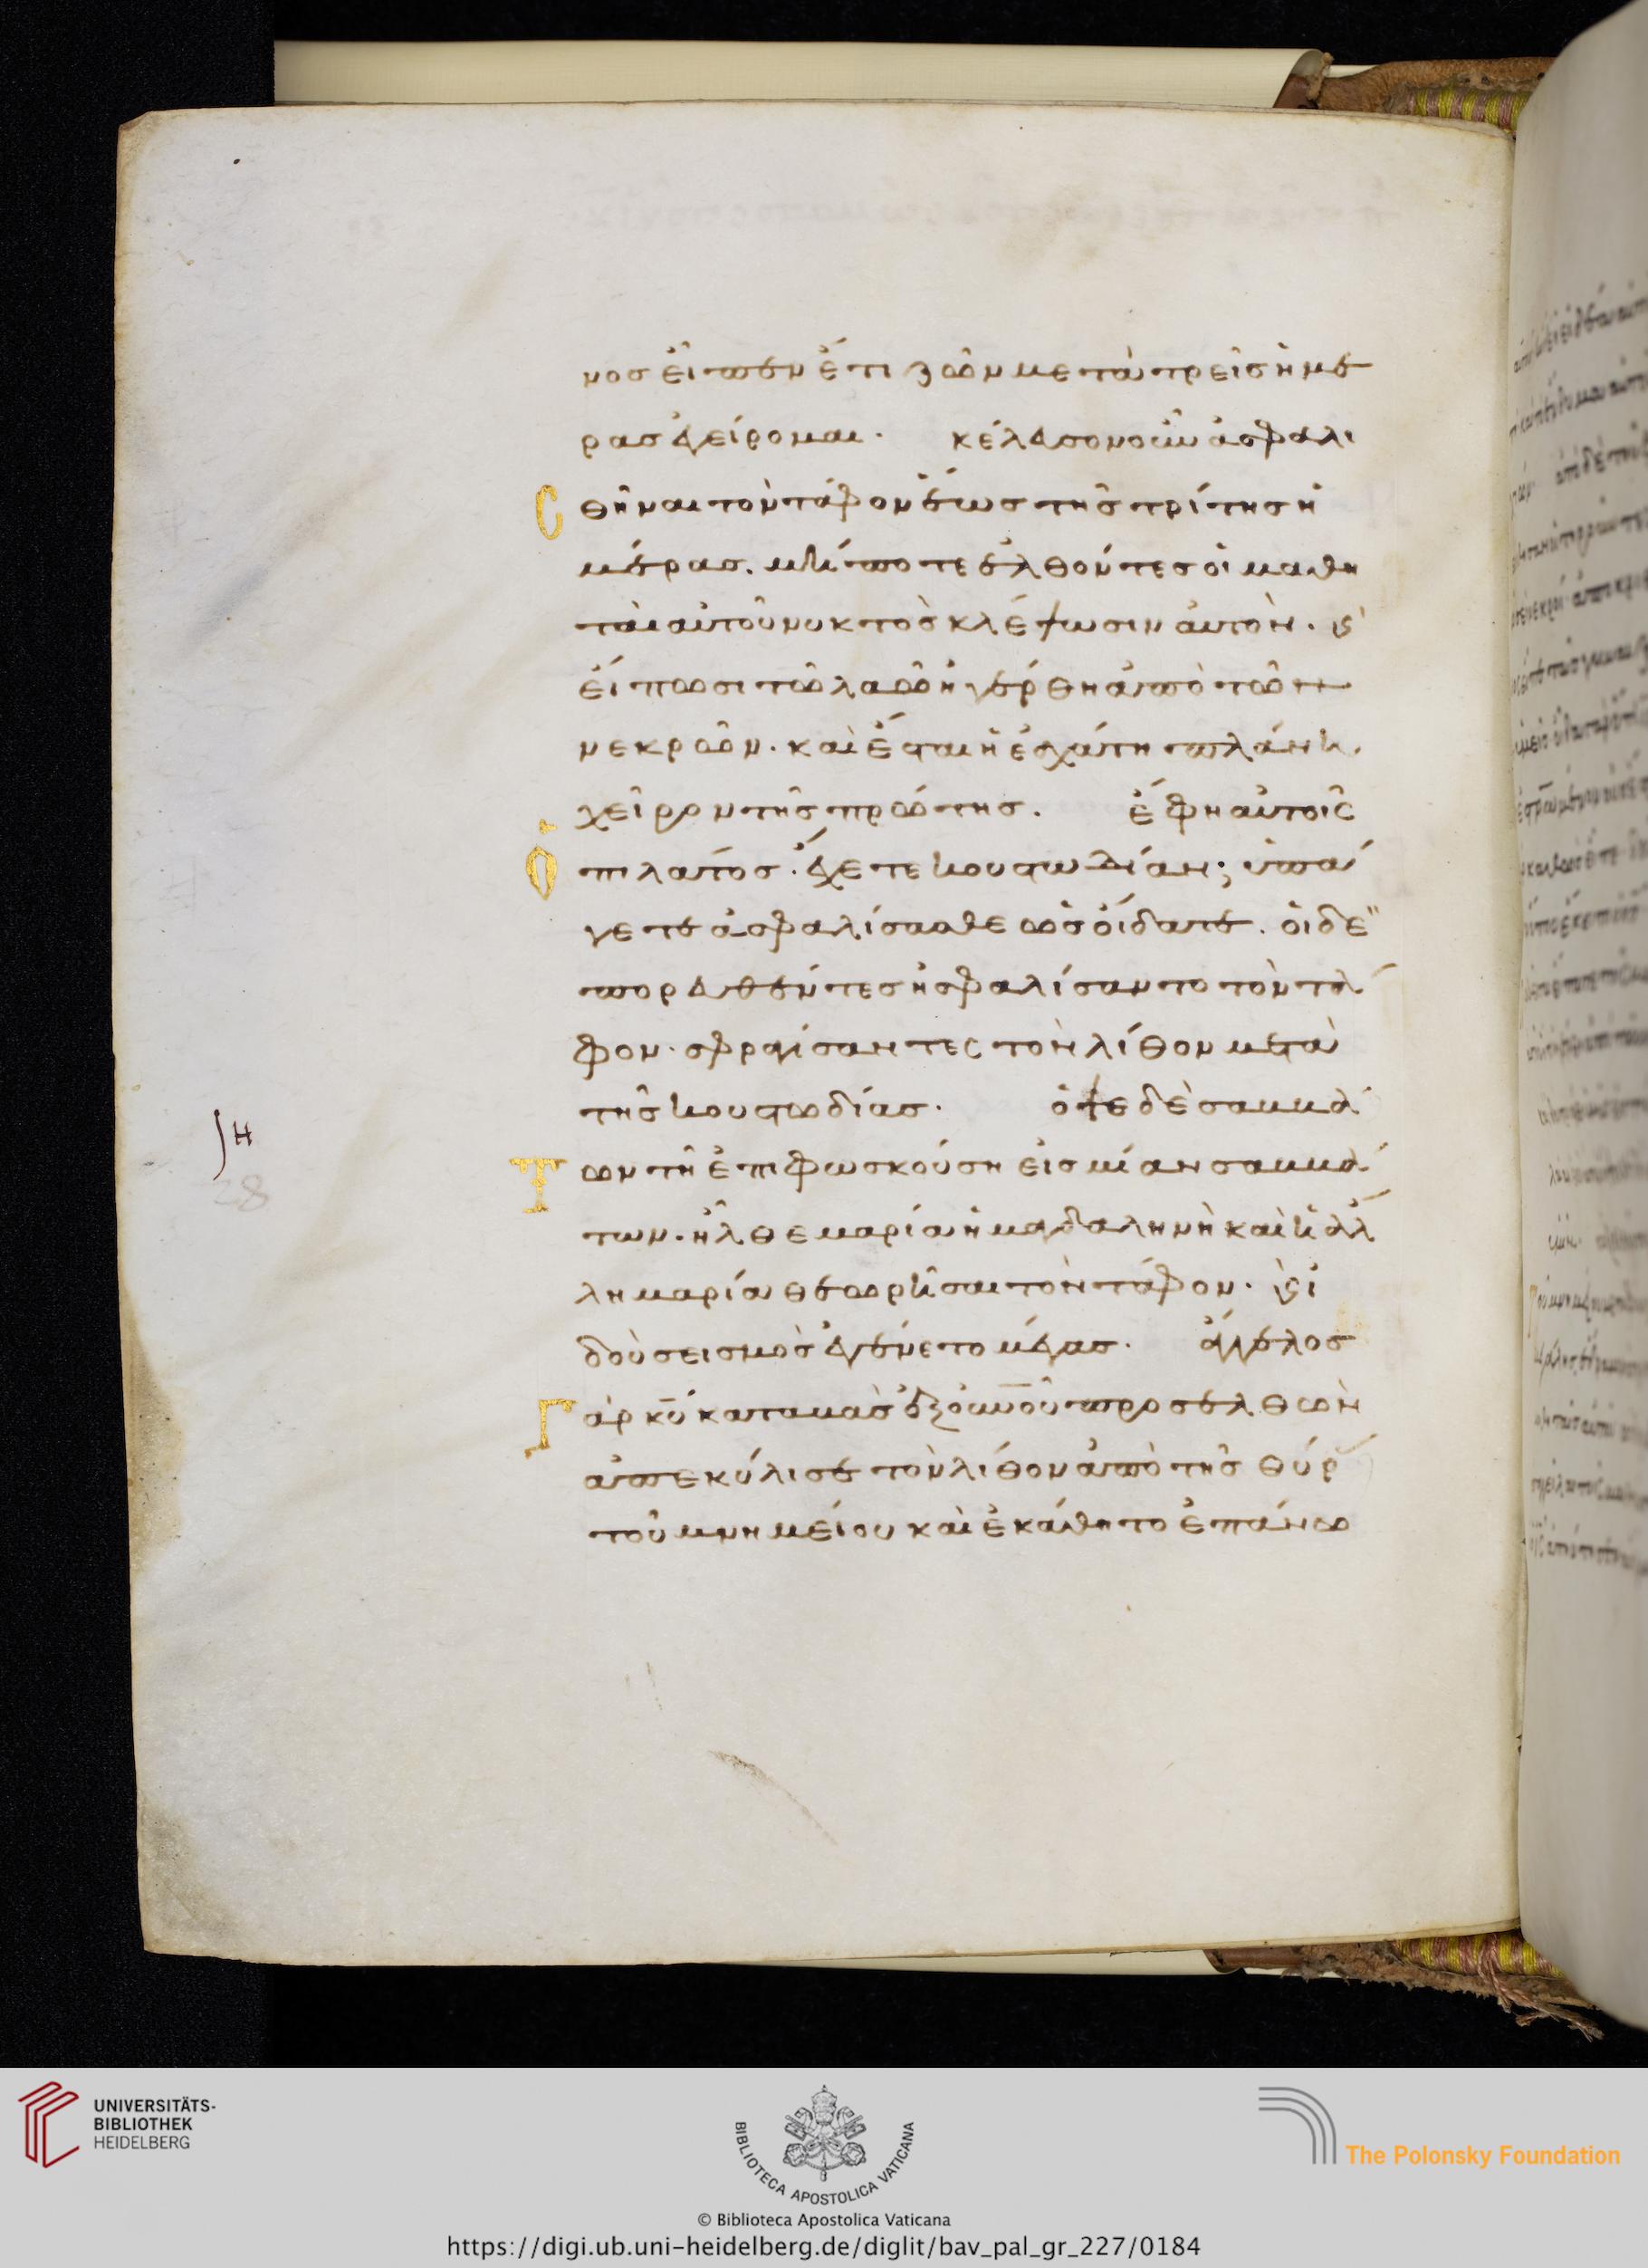 νος εἶπεν ἔτι ζῶν μετὰ τρεῖς ἡμέ
ρας ἐγείρομαι. κέλευσον οὖν ἀσφαλι
σθῆναι τὸν τάφον ἕως τῆς τρίτης ἡ
μέρας. μήποτε ἐλθόντες οἱ μαθη
ταὶ αὐτοῦ νυκτὸς κλέψωσιν αὐτὸν. ϗ
εἴπωσι τῶ λαῶ ἠγέρθη ἀπὸ τῶν
νεκρῶν. καὶ ἔσται ἡ ἐσχάτη πλάνη.
χεῖρον τῆς πρώτης. ἔφη αὐτοῖς
ὁ πιλάτος. ἔχετε κουστωδίαν; ὑπά
γετε ἀσφαλίσασθε ὡς οἴδατε. οἱ δὲ
πορευθέντες ἠσφαλίσαντο τὸν τά
φον. σφραγίσαντες τὸν λίθον μετὰ
τῆς κουστωδίας. ὀψὲ δὲ σαββά
των τῆ ἐπιφωσκούση εἰς μίαν σαββά
των. ἦλθε μαρία ἡ μαγδαληνὴ καὶ ἡ ἄλ
λη μαρία θεωρῆσαι τὸν τάφον. ϗ ἰ
δοὺ σεισμὸς ἐγένετο μέγας. ἄγγελος
γὰρ κ̅υ̅ καταβὰς ἐξ ο̅υ̅ν̅ο̅ῦ προσελθὼν
ἀπεκύλισε τὸν λίθον ἀπὸ τῆς θύρ
τοῦ μνημείου καὶ ἐκάθητο ἐπάνω
28
UNIVERSITÄTS-
BIBLIOTHEK
HEIDELBERG
BIBLIOTECA APOSTOLICA VATICANA
The Polonsky Foundation
© Biblioteca Apostolica Vaticana
https://digi.ub.uni-heidelberg.de/diglit/bav_pal_gr_227/0184